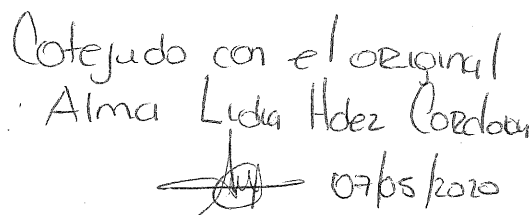 Cotejado con el original
Alma Lidia Hdez Cordova
07/05/2020